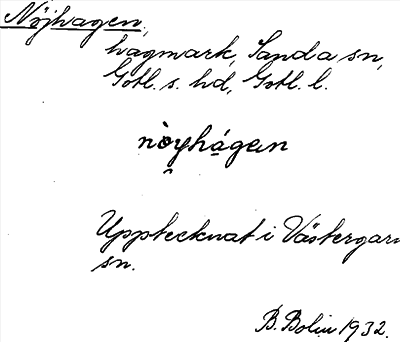 Nöjhagen,
hagmark, Sanda sn,
Gotl. s. hd, Gotl. l.
nòyhágen
Upptecknat i Västergarn
sn.
B. Bolin 1932.